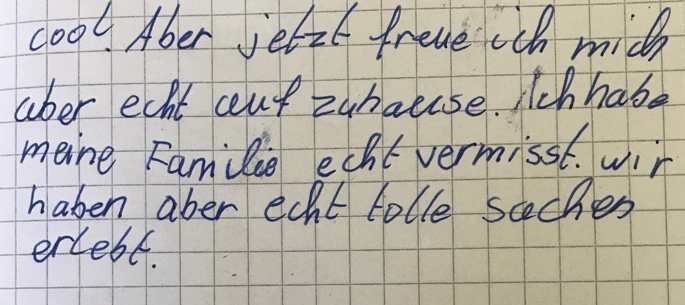 cool. Aber jetzt freue ich mich
aber echt auf zuhause. Ich habe
meine Familie echt vermisst. wir
haben aber echt tolle sachen
erlebt.